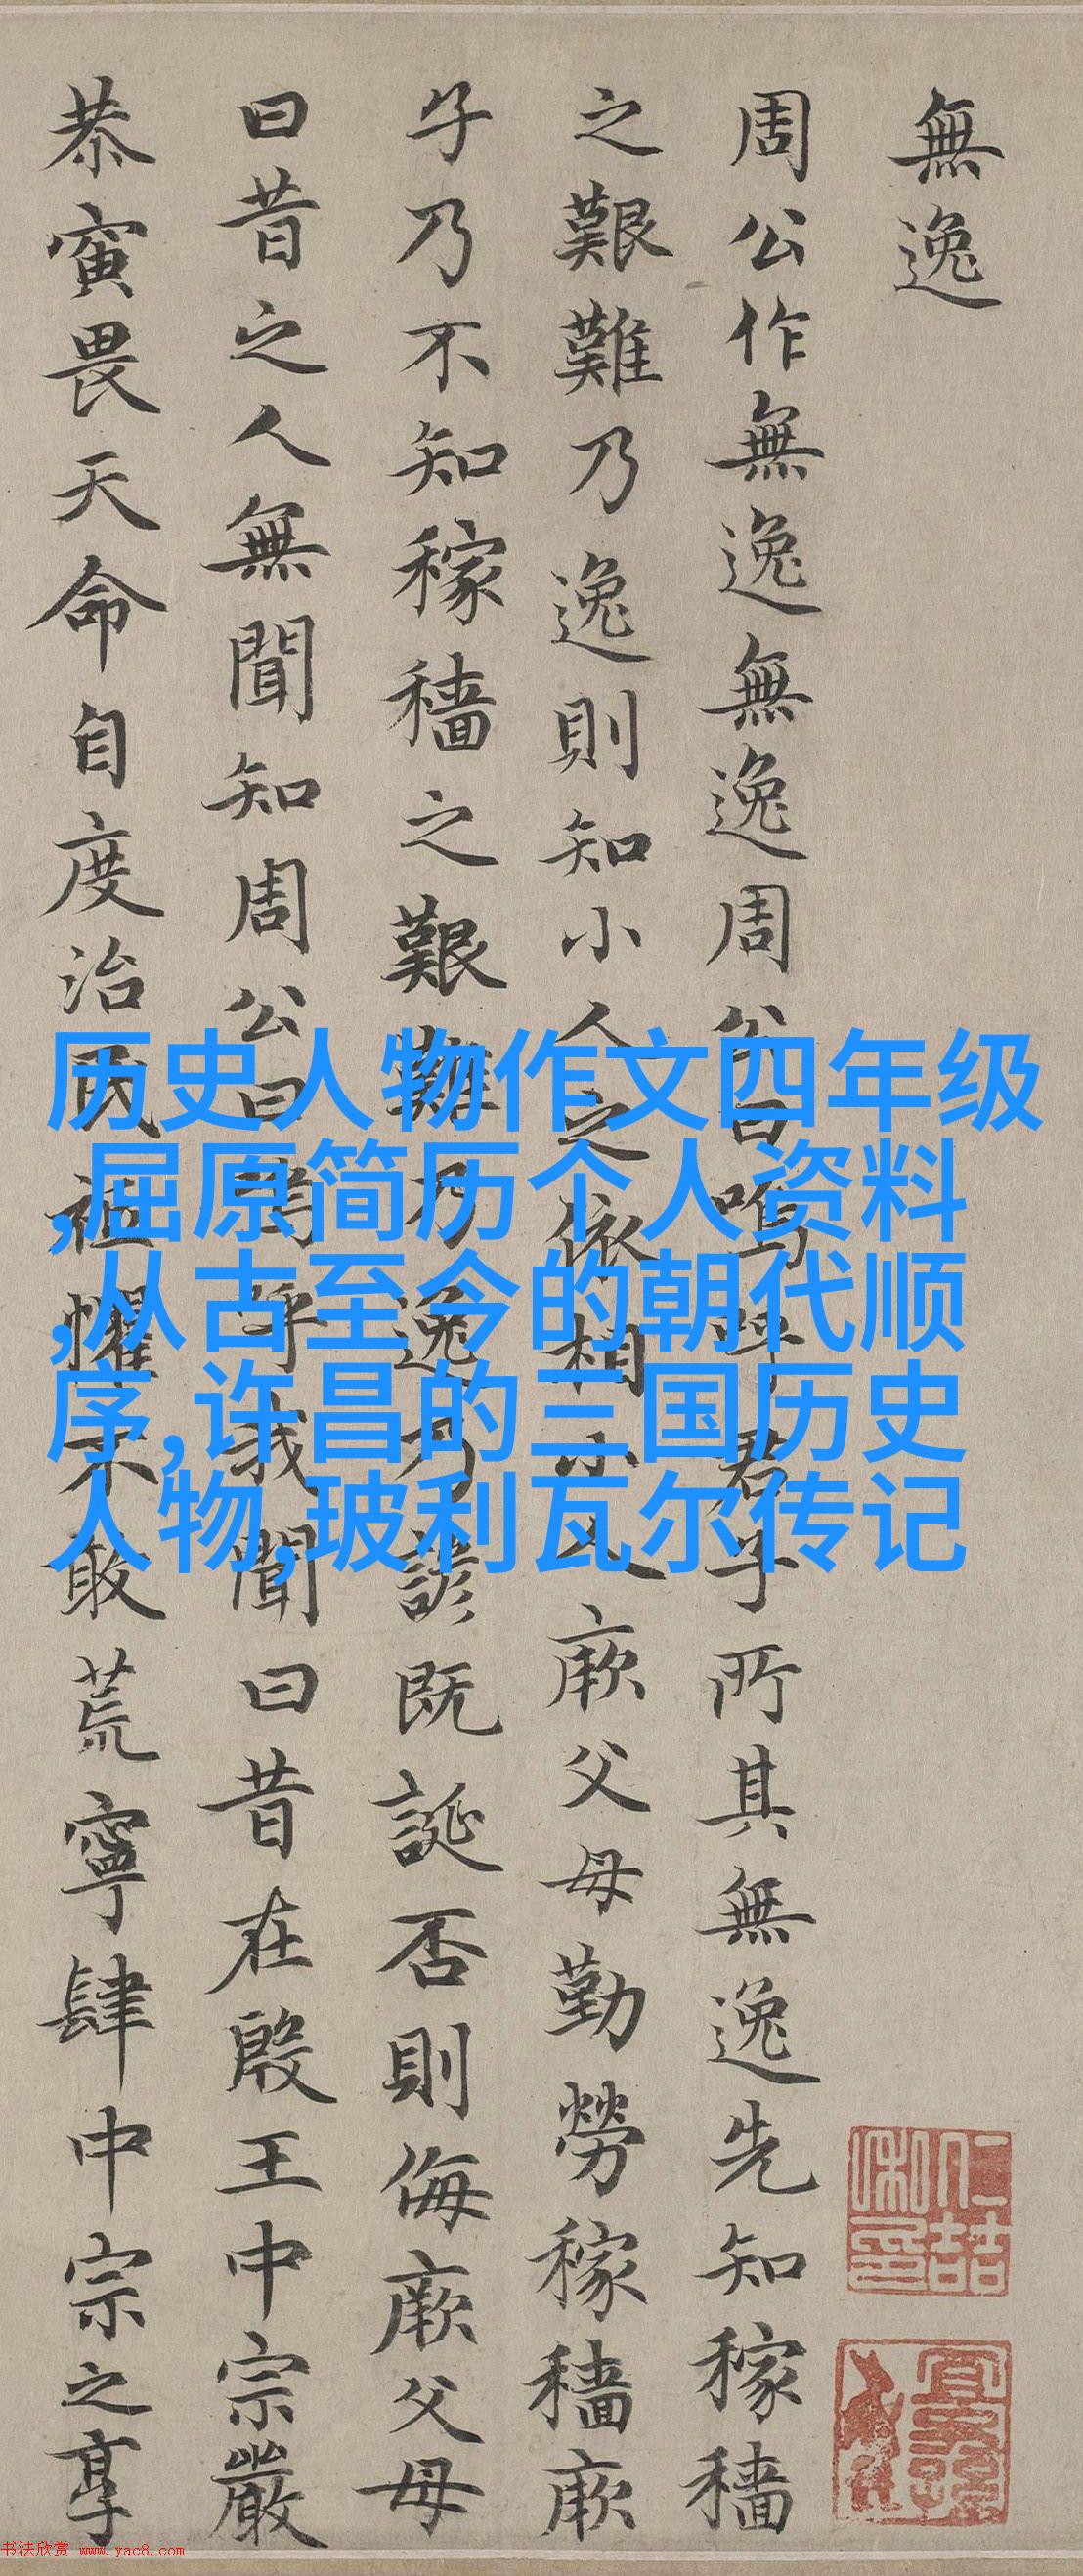 無逸
周公作無逸無逸周公曰嗚呼君子所其無逸先知稼穡
之艱難乃逸則知小人之依相小人厥父母勤勞稼穡厥
子乃不知稼穡之艱難乃逸乃諺既誕否則侮厥父母
曰昔之人無聞知周公曰嗚呼我聞曰昔在殷王中宗嚴
恭寅畏天命自度治民祗懼不敢荒寧肆中宗之享
历史人物作文四年级
,屈原简历个人资料
,从古至今的朝代顺
序,许昌的三国历史
人物,玻利瓦尔传记
书法欣赏 www.yac8.com